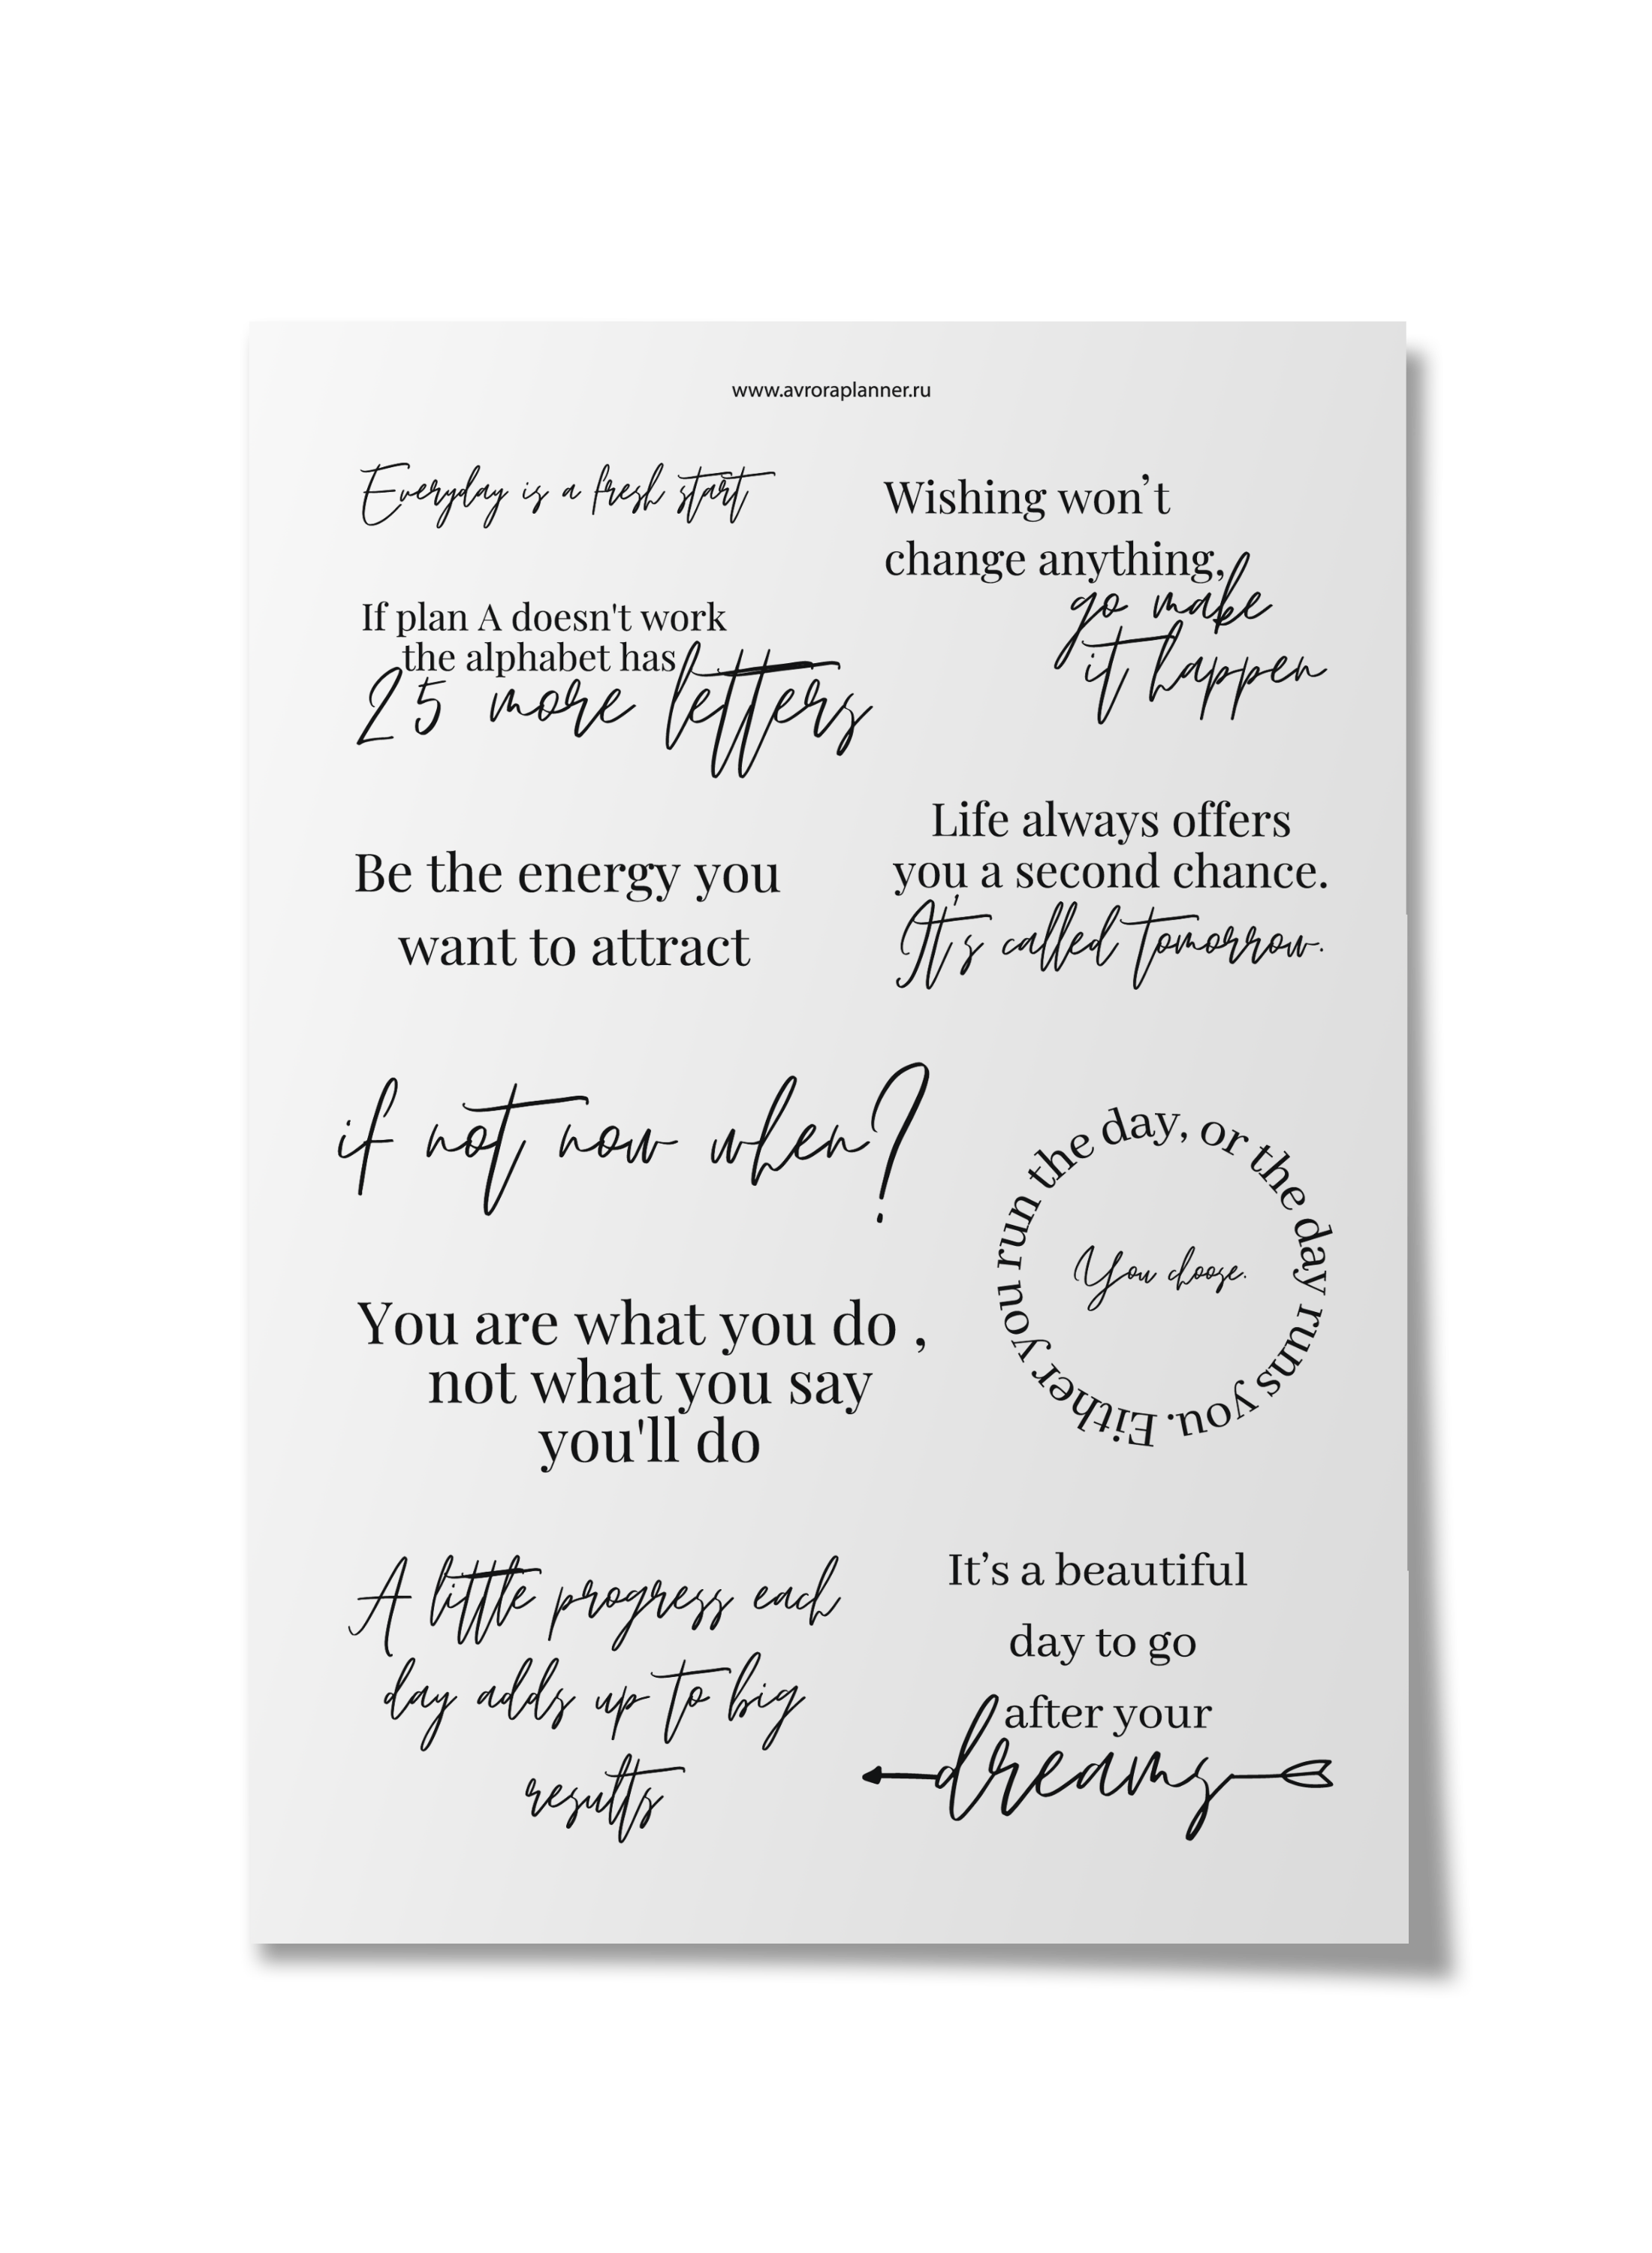 www.avroraplanner.ru
Everyday is a fresh start
Wishing won’t
change anything,
go make
it happen
If plan A doesn't work
the alphabet has
25 more letters
Life always offers
you a second chance.
It’s called tomorrow.
Be the energy you
want to attract
if not now when?
Either you run the day, or the day runs you.
You choose.
You are what you do ,
not what you say
you'll do
A little progress each
day adds up to big
results
It’s a beautiful
day to go
after your
dreams